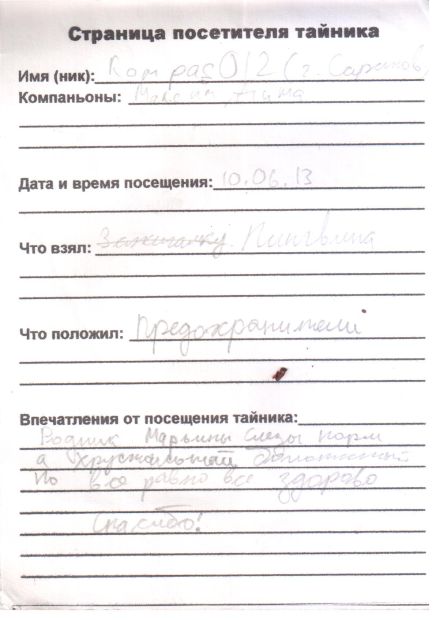 Страница посетителя тайника
Имя (ник): Компас012 (г. Саратов,
Компаньоны: Максим,
Дата и время посещения: 10.06.13
Что взял: Зажигалку Пингвина
Что положил: Предохранители
Впечатления от посещения тайника:
Родник Марьины Слезы норм
а хрустальный
Но все равно все здорово
Спасибо!